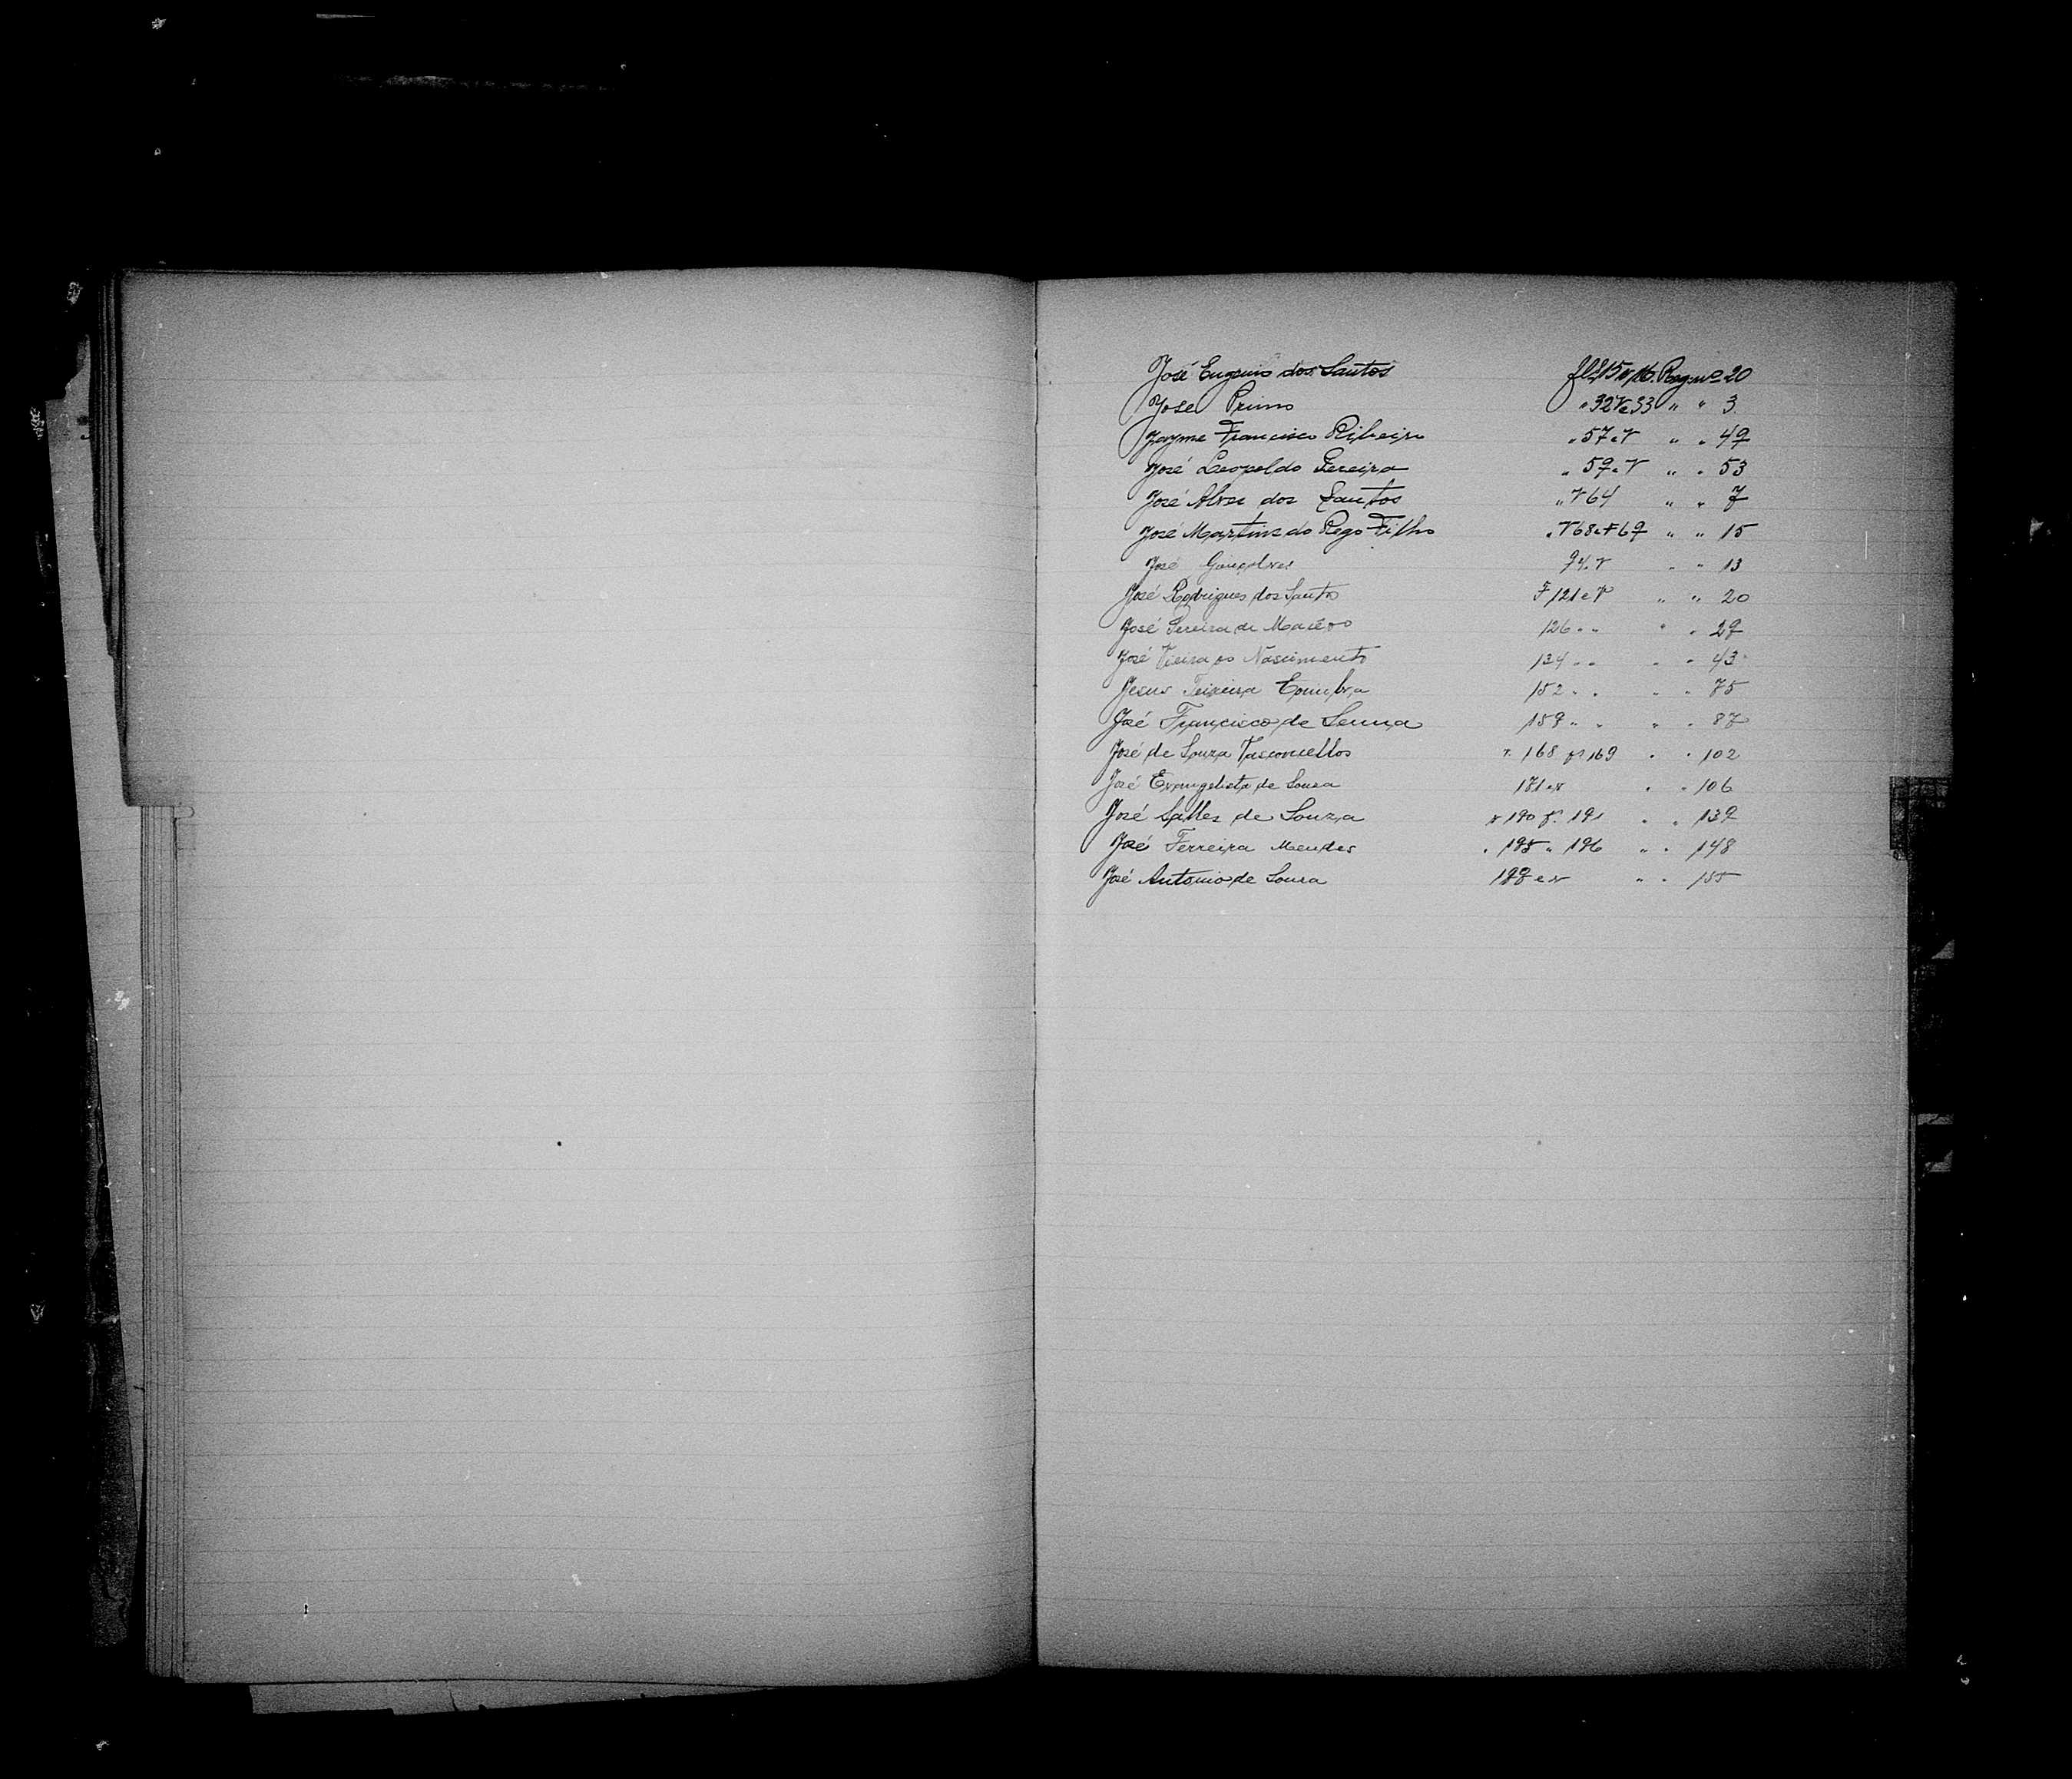 José Eugenio dos Santos fls 15 v, 16. Reg. nº 20
José Primo " 32 V e 33 " " 3
Jayme Francisco Ribeiro " 57 e V " " 49
José Leopoldo Pereira " 59 e V " " 53
José Alves dos Santos " V 64 " " 7
José Martins do Rego Filho " V 68 e F 69 " " 15
José Gonçalves 94 e V " " 13
José Rodrigues dos Santos F 121 e V " " 20
José Pereira de Macêdo 126 " " " " 29
José Vieira do Nascimento 134 " " " " 43
Jesus Teixeira Coimbra 152 " " " " 75
José Francisco de Senna 159 " " " " 87
José de Souza Vasconcellos v. 168 fs 169 " " 102
José Evangelista de Souza 171 e v " " 106
José Salles de Souza v 190 f. 191 " " 139
José Ferreira Mendes " 195 " 196 " " 148
José Antonio de Souza 199 e v " " 155